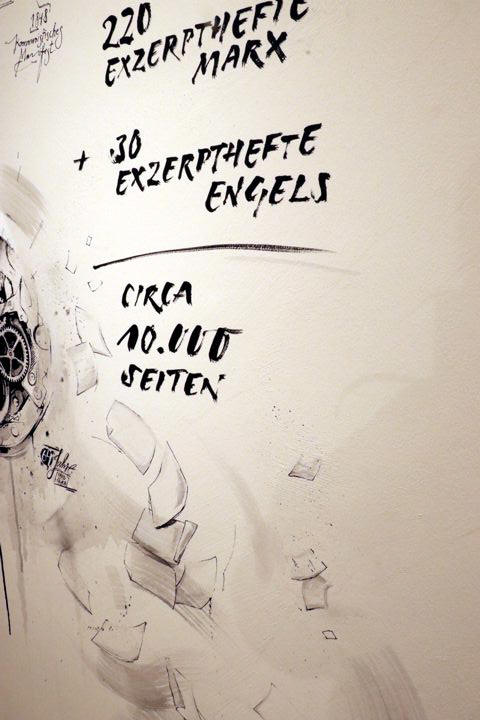 1848
Kommunistisches
Manifest
220
EXZERPTHEFTE
MARX
+ 30
EXZERPTHEFTE
ENGELS
CIRCA
10.000
SEITEN
Jahre